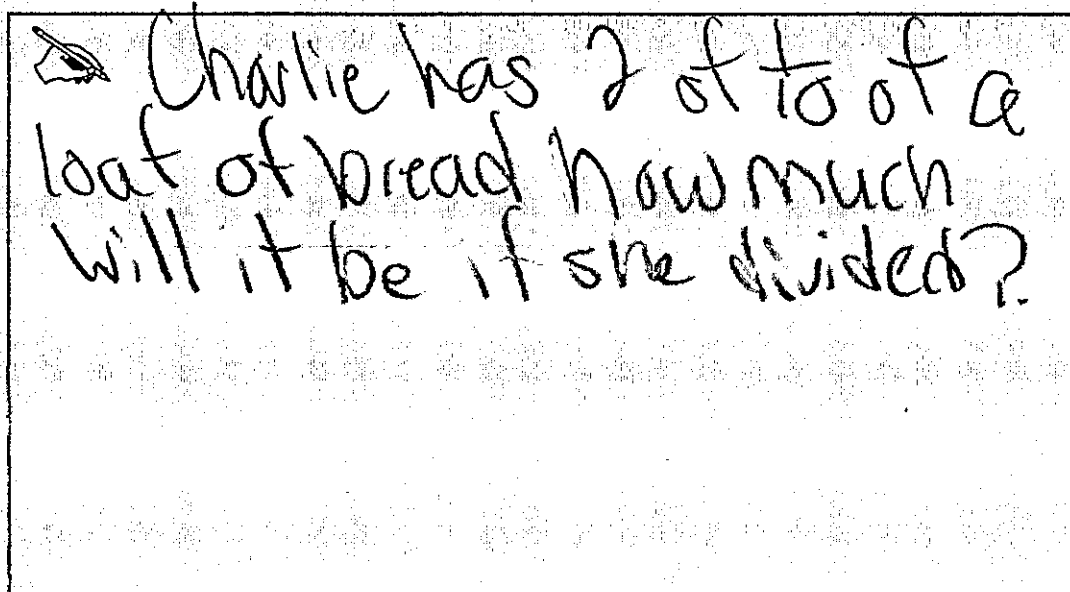 Charlie has 2 of 1/10 of a
loaf of bread how much
will it be if she divided?